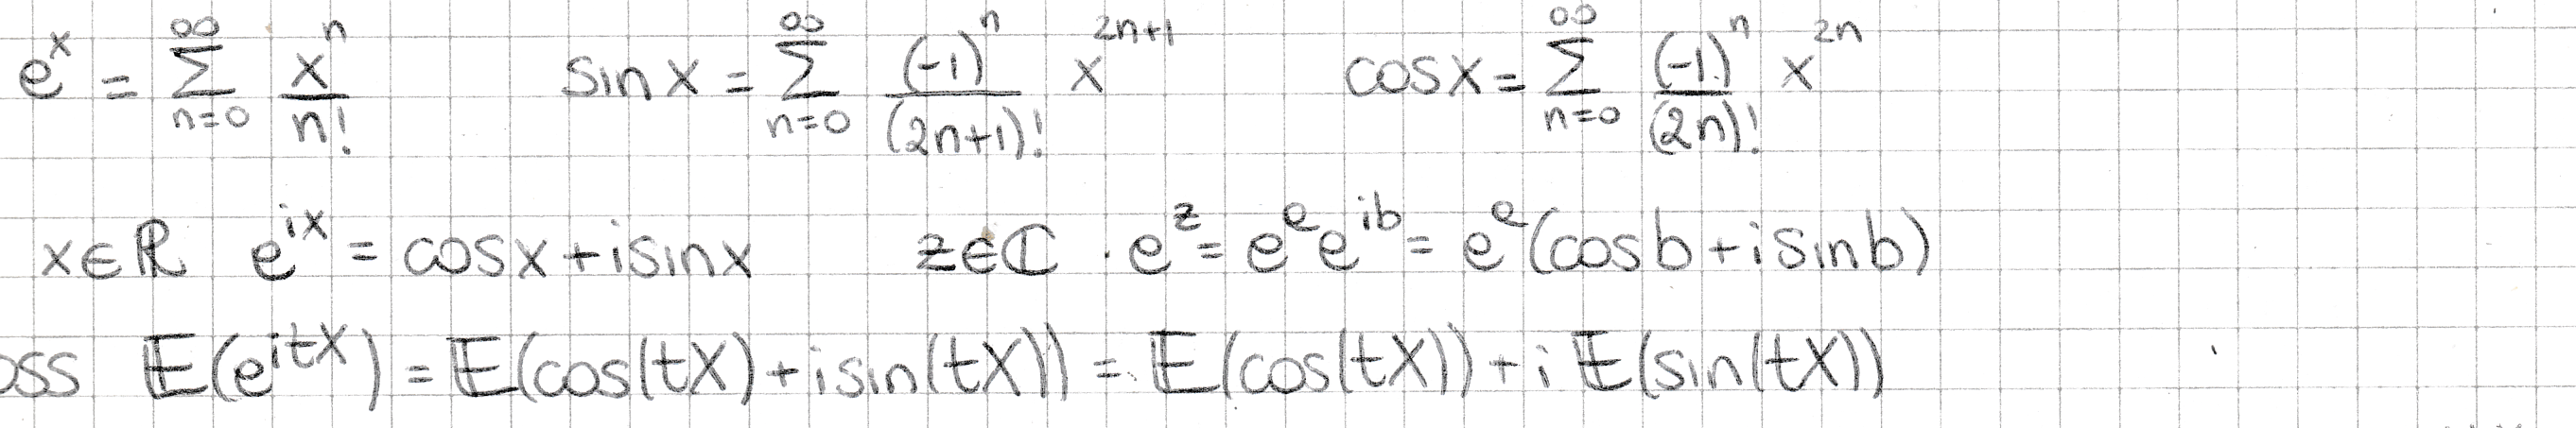 e^x = ∑_{n=0}^{∞} x^n/n!    sin x = ∑_{n=0}^{∞} (-1)^n/(2n+1)! x^{2n+1}    cos x = ∑_{n=0}^{∞} (-1)^n/(2n)! x^{2n}
x∈ℝ  e^{ix} = cos x + i sin x    z∈ℂ · e^z = e^a e^{ib} = e^a (cos b + i sin b)
oss  𝔼(e^{itX}) = 𝔼(cos(tX) + i sin(tX)) = 𝔼(cos(tX)) + i 𝔼(sin(tX))